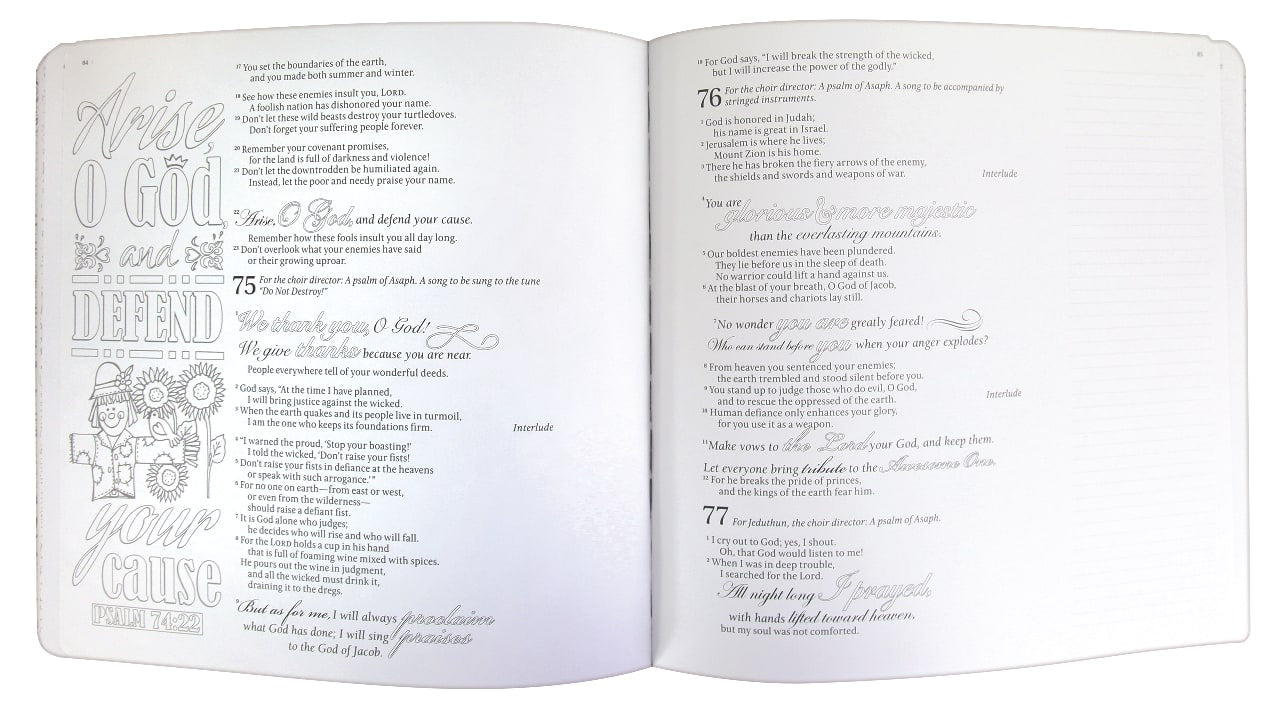 84
Arise,
O God,
and
DEFEND
your
cause
PSALM 74:22
17 You set the boundaries of the earth,
and you made both summer and winter.
18 See how these enemies insult you, LORD.
A foolish nation has dishonored your name.
19 Don't let these wild beasts destroy your turtledoves.
Don't forget your suffering people forever.
20 Remember your covenant promises,
for the land is full of darkness and violence!
21 Don't let the downtrodden be humiliated again.
Instead, let the poor and needy praise your name.
22 Arise, O God, and defend your cause.
Remember how these fools insult you all day long.
23 Don't overlook what your enemies have said
or their growing uproar.
75 For the choir director: A psalm of Asaph. A song to be sung to the tune
"Do Not Destroy!"
1 We thank you, O God!
We give thanks because you are near.
People everywhere tell of your wonderful deeds.
2 God says, "At the time I have planned,
I will bring justice against the wicked.
3 When the earth quakes and its people live in turmoil,
I am the one who keeps its foundations firm. Interlude
4 "I warned the proud, 'Stop your boasting!'
I told the wicked, 'Don't raise your fists!
5 Don't raise your fists in defiance at the heavens
or speak with such arrogance.'"
6 For no one on earth—from east or west,
or even from the wilderness—
should raise a defiant fist.
7 It is God alone who judges;
he decides who will rise and who will fall.
8 For the LORD holds a cup in his hand
that is full of foaming wine mixed with spices.
He pours out the wine in judgment,
and all the wicked must drink it,
draining it to the dregs.
9 But as for me, I will always proclaim
what God has done; I will sing praises
to the God of Jacob.
85
10 For God says, "I will break the strength of the wicked,
but I will increase the power of the godly."
76 For the choir director: A psalm of Asaph. A song to be accompanied by
stringed instruments.
1 God is honored in Judah;
his name is great in Israel.
2 Jerusalem is where he lives;
Mount Zion is his home.
3 There he has broken the fiery arrows of the enemy,
the shields and swords and weapons of war. Interlude
4 You are
glorious & more majestic
than the everlasting mountains.
5 Our boldest enemies have been plundered.
They lie before us in the sleep of death.
No warrior could lift a hand against us.
6 At the blast of your breath, O God of Jacob,
their horses and chariots lay still.
7 No wonder you are greatly feared!
Who can stand before you when your anger explodes?
8 From heaven you sentenced your enemies;
the earth trembled and stood silent before you.
9 You stand up to judge those who do evil, O God,
and to rescue the oppressed of the earth. Interlude
10 Human defiance only enhances your glory,
for you use it as a weapon.
11 Make vows to the Lord your God, and keep them.
Let everyone bring tribute to the Awesome One.
12 For he breaks the pride of princes,
and the kings of the earth fear him.
77 For Jeduthun, the choir director: A psalm of Asaph.
1 I cry out to God; yes, I shout.
Oh, that God would listen to me!
2 When I was in deep trouble,
I searched for the Lord.
All night long I prayed,
with hands lifted toward heaven,
but my soul was not comforted.